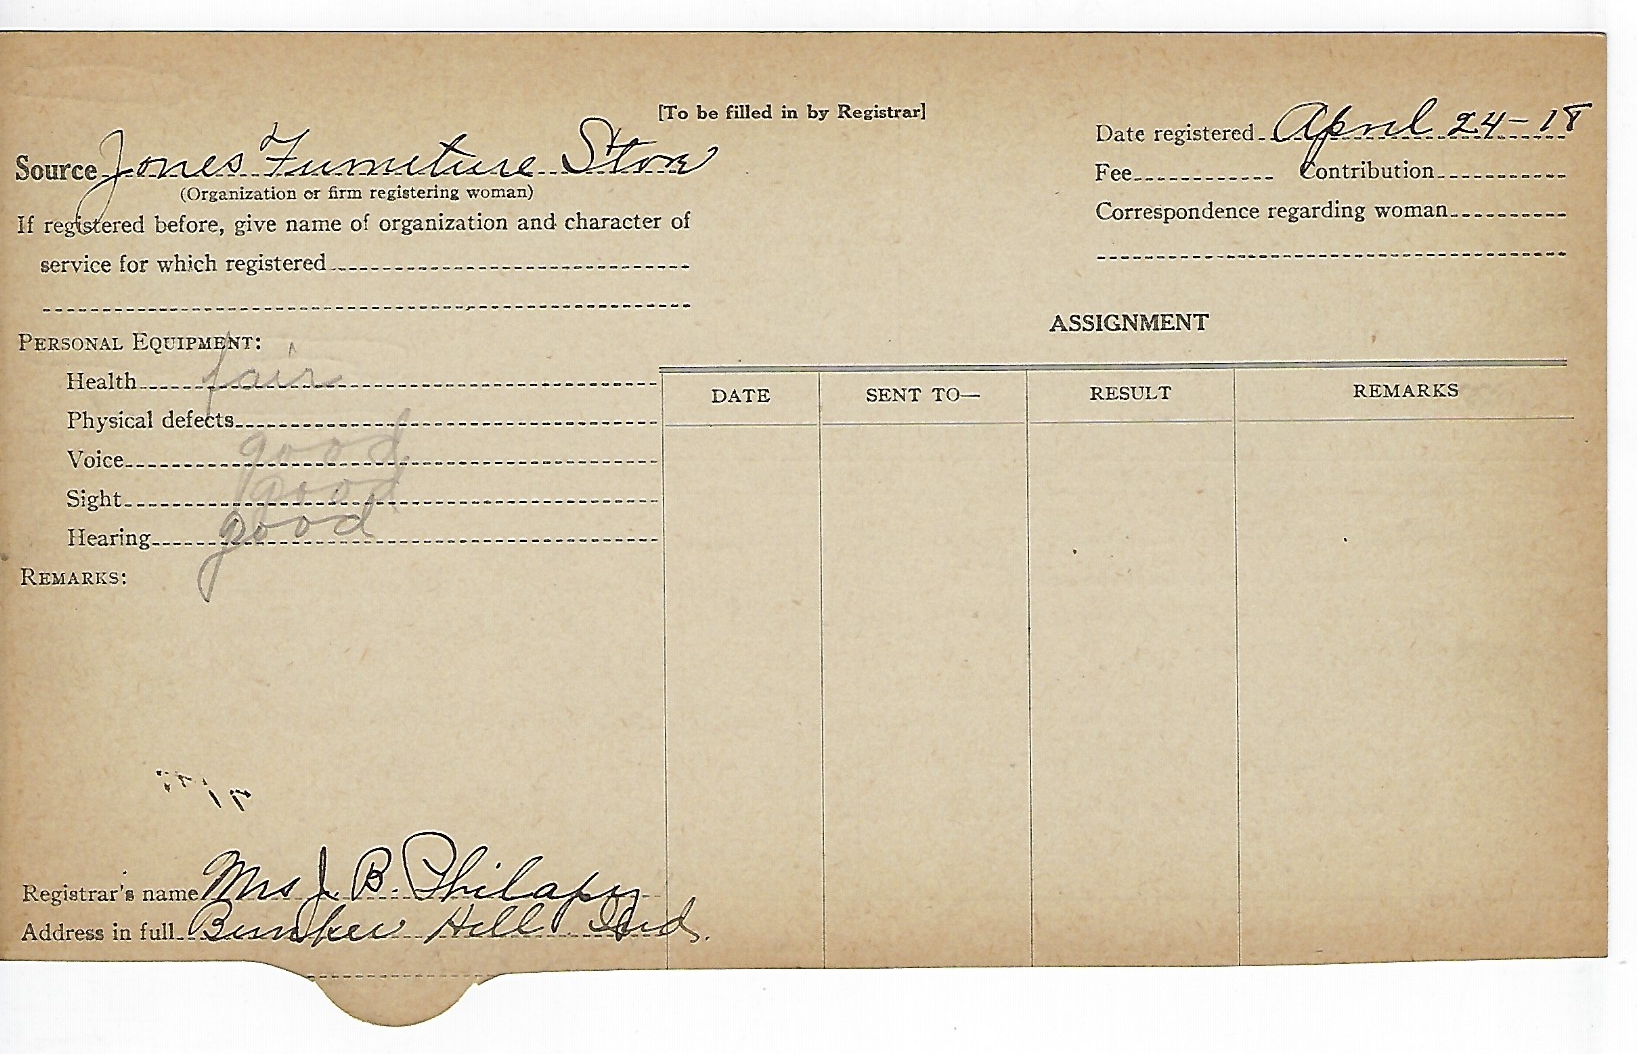 [To be filled in by Registrar]
Source Jones Furniture Store
(Organization or firm registering woman)
If registered before, give name of organization and character of
service for which registered
Date registered April 24-18
Fee Contribution
Correspondence regarding woman
PERSONAL EQUIPMENT:
Health fair
Physical defects
Voice good
Sight good
Hearing good
REMARKS:
ASSIGNMENT
DATE SENT TO— RESULT REMARKS
Registrar's name Mrs J. B. Philapy
Address in full Bunker Hill Ind.